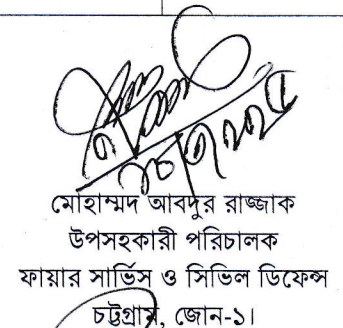 মোহাম্মদ আবদুর রাজ্জাক
উপসহকারী পরিচালক
ফায়ার সার্ভিস ও সিভিল ডিফেন্স
চট্টগ্রাম, জোন-১।